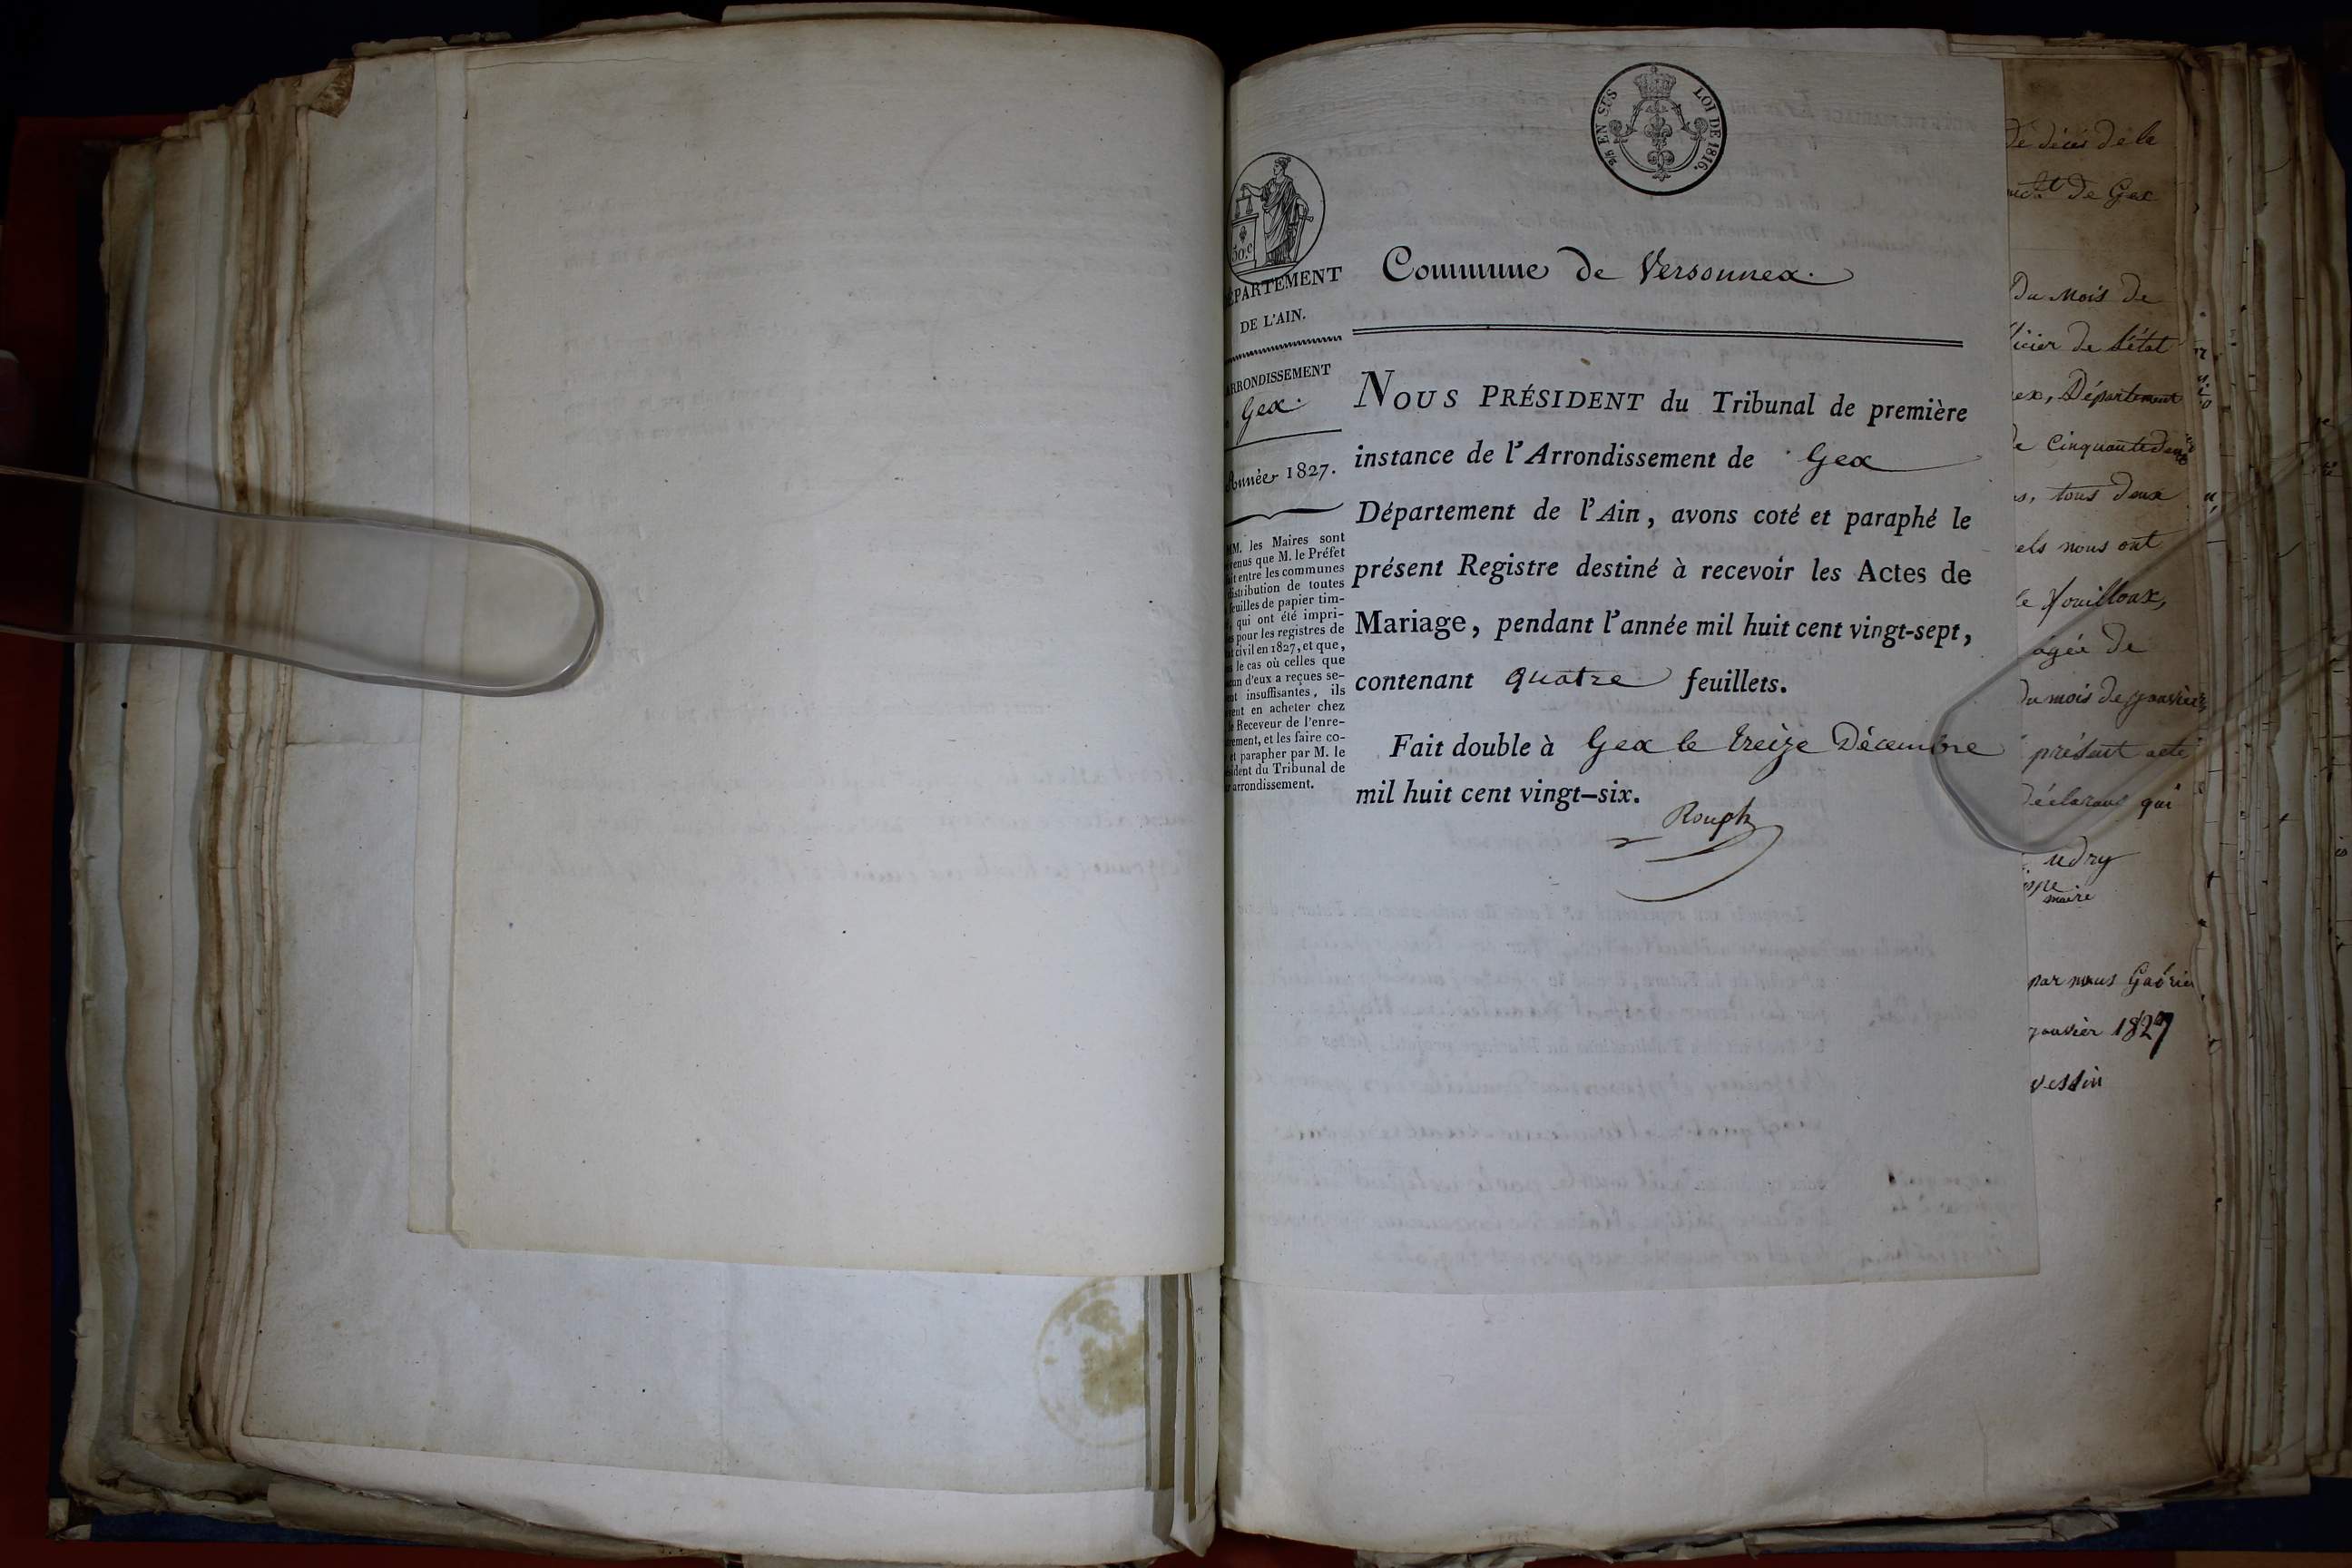 25 EN SUS LOI DE 1816.
50.c
DÉPARTEMENT
DE L'AIN.
ARRONDISSEMENT
Gex.
Année 1827.
MM. les Maires sont
venus que M. le Préfet
entre les communes
distribution de toutes
feuilles de papier tim-
qui ont été impri-
pour les registres de
civil en 1827, et que,
le cas où celles que
d'eux a reçues se-
insuffisantes, ils
en acheter chez
Receveur de l'enre-
et les faire co-
et parapher par M. le
du Tribunal de
arrondissement.
Commune de Versonnex.
NOUS PRÉSIDENT du Tribunal de première
instance de l'Arrondissement de Gex
Département de l'Ain, avons coté et paraphé le
présent Registre destiné à recevoir les Actes de
Mariage, pendant l'année mil huit cent vingt-sept,
contenant quatre feuillets.
Fait double à Gex le treize Décembre
mil huit cent vingt-six.
Rouph
de décès de la
de Gex
du mois de
de l'état
ex, Département
de Cinquante deux
tous deux
nous ont
le Fouilloux,
âgée de
du mois de janvier
présent acte
qui
udry
maire
par nous Gabriel
janvier 1827
vessin